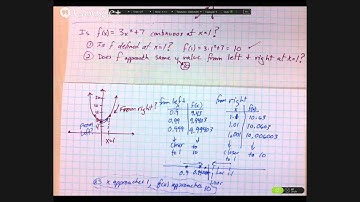 Is f(x) = 3x²+7 continuous at x=1?
① Is f defined at x=1? f(1) = 3·1²+7 = 10 ✓
② Does f approach same y value from left & right at x=1?
from left
x f(x)
0.9 9.43
0.99
0.999
↓ ↓
closer to
to 1 10
from right
x f(x)
1.1 10.63
1.01 10.0603
1.001 10.006003
↓ ↓
closer to 10
to 1
From right?
From left?
x=1
0.9
as x approaches 1, f(x) approaches 10